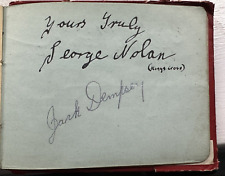 Yours Truly
George Nolan
(Kings Cross)
Jack Dempsey